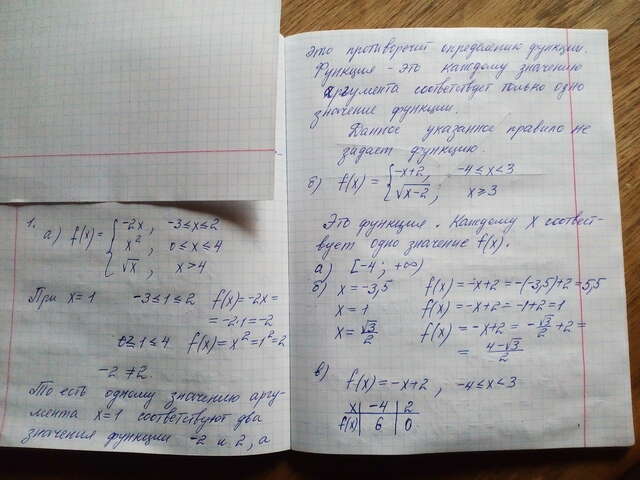 1. а) f(x) = { -2x, -3 ≤ x ≤ 2
x², 0 ≤ x ≤ 4
√x, x > 4
При x = 1 -3 ≤ 1 ≤ 2 f(x) = -2x =
= -2·1 = -2
0 ≤ 1 ≤ 4 f(x) = x² = 1² = 2
-2 ≠ 2
То есть одному значению аргу-
мента x = 1 соответствуют два
значения функции -2 и 2, а
Это противоречит определению функции.
Функция - это каждому значению
аргумента соответствует только одно
значение функции.
Данное указанное правило не
задает функцию.
б) f(x) = { -x+2, -4 ≤ x < 3
√x-2, x ≥ 3
Это функция. Каждому x соответ-
вует одно значение f(x).
а) [-4; +∞)
б) x = -3,5 f(x) = -x+2 = -(-3,5)+2 = 5,5
x = 1 f(x) = -x+2 = -1+2 = 1
x = √3/2 f(x) = -x+2 = -√3/2 + 2 =
= 4-√3/2
в)
f(x) = -x+2, -4 ≤ x < 3
x | -4 | 2
f(x) | 6 | 0